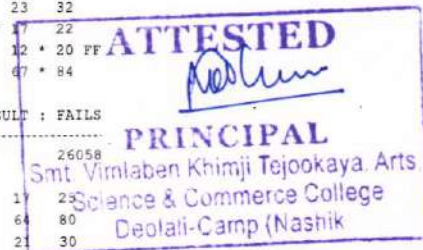 23 32
17 22
12 * 20 FF
67 * 84
ATTESTED
SULT : FAILS
PRINCIPAL
26058
Smt. Vimlaben Khimji Tejookaya. Arts
Science & Commerce College
17 25
Deolali-Camp (Nashik
64 80
21 30